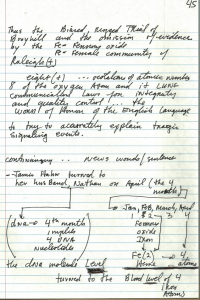 45
Thus the Biased, Ringed TRial of
and the omission of evidence
by the Fe - Ferrous oxide
R - Female community of
Raleigh(t)
eight(t) ... octotern of atomic number
8 of the oxygen Atom and it
communicative laws for integrator
and quality control ... the
word of Honor of the English Language
to try to accurately explain tragic
signaling events.
continuing ... News words/sentence
-- Jamie Hahn turned to
her husband, Nathan on April (the 4
month)
Jan, Feb, March, April
(dna → 4th month 1 2 3 4
might Ferrous
4 DNA oxide
Nucleotide Iron
Fe(2) → 4
the dna molecule Level Heme atoms
turned to the Blood Level of 4
iron
Atoms